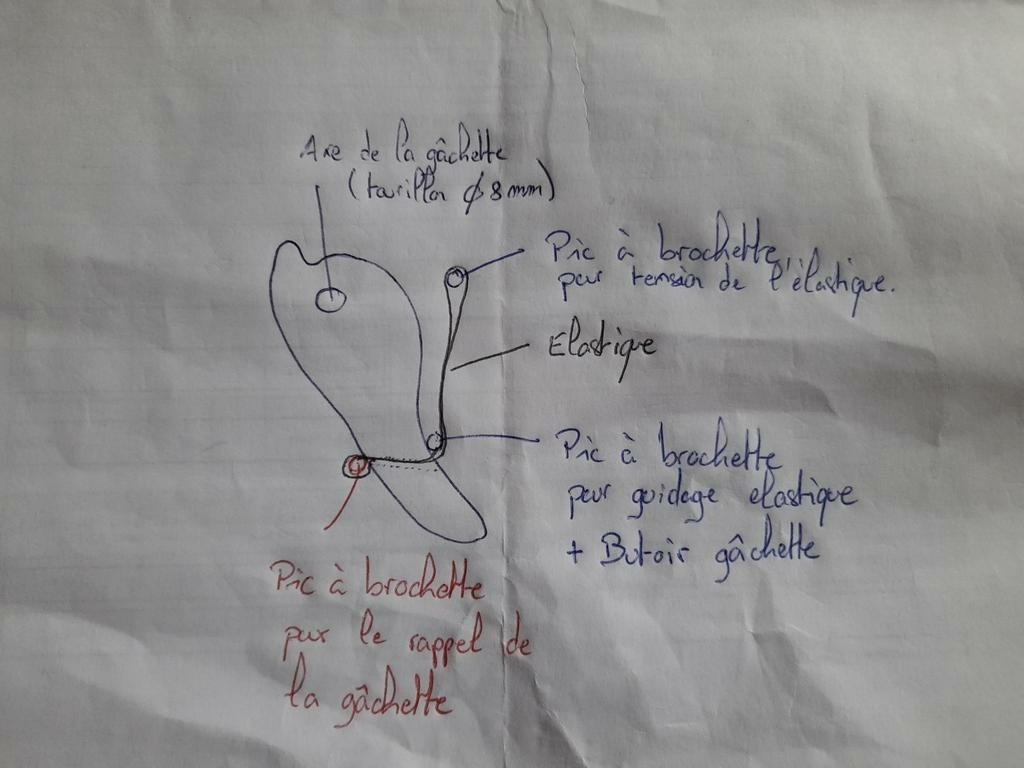 Axe de la gâchette
(tourillon ϕ 8 mm)
Pic à brochette
pour tension de l'élastique.
Elastique
Pic à brochette
pour guidage elastique
+ Butoir gâchette
Pic à brochette
pour le rappel de
la gâchette